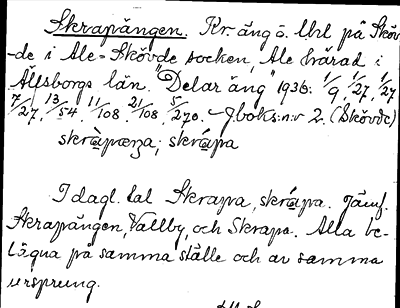 Skrapängen. Kr. äng ö. Utl på Sköv-
de i Ale-Skövde socken, Ale härad i
Älfsborgs län. "Delar äng" 1936: 1/9, 1/27, 1/27
7/27, 13/54, 11/108, 21/108, 5/270. Jboks:n:r 2. (Skövde)
skràpæŋa; skrápa
I dagl. tal Skrapa, skrápa. Jämf.
Skrapängen, Vallby, och Skrapa. Alla be-
lägna på samma ställe och av samma
ursprung.